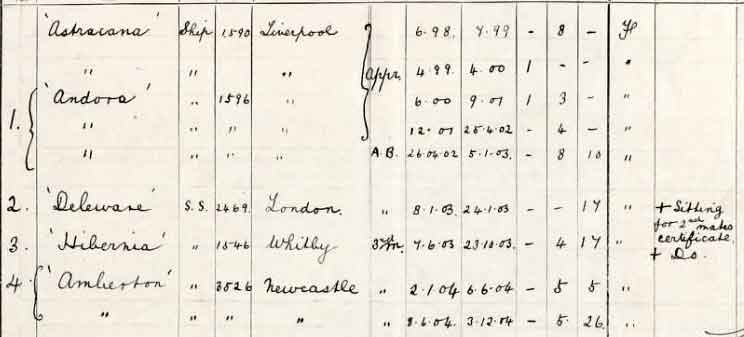 'Astracana' Ship 1590 Liverpool 6.98. 7.99 - 8 - H
" " " Appr. 4.99. 4.00 1 - - "
1. 'Andora' " 1596 " 6.00 9.01 1 3 - "
" " " " 12.01 25.4.02 - 4 - "
" " " " A.B. 26.04.02 5.1.03. - 8 10 "
2. 'Deleware' S.S. 2469. London. " 8.1.03. 24.1.03 - - 17 " + Sitting
for 2nd mates
3. 'Hibernia' " 1546 Whitby 3rd M. 7.6.03 23.10.03 - 4 17 " certificate.
+ Do.
4. 'Amberton' " 3526 Newcastle " 2.1.04 6.6.04 - 5 5 "
" " " " " 8.6.04 3.12.04 - 5. 26. "